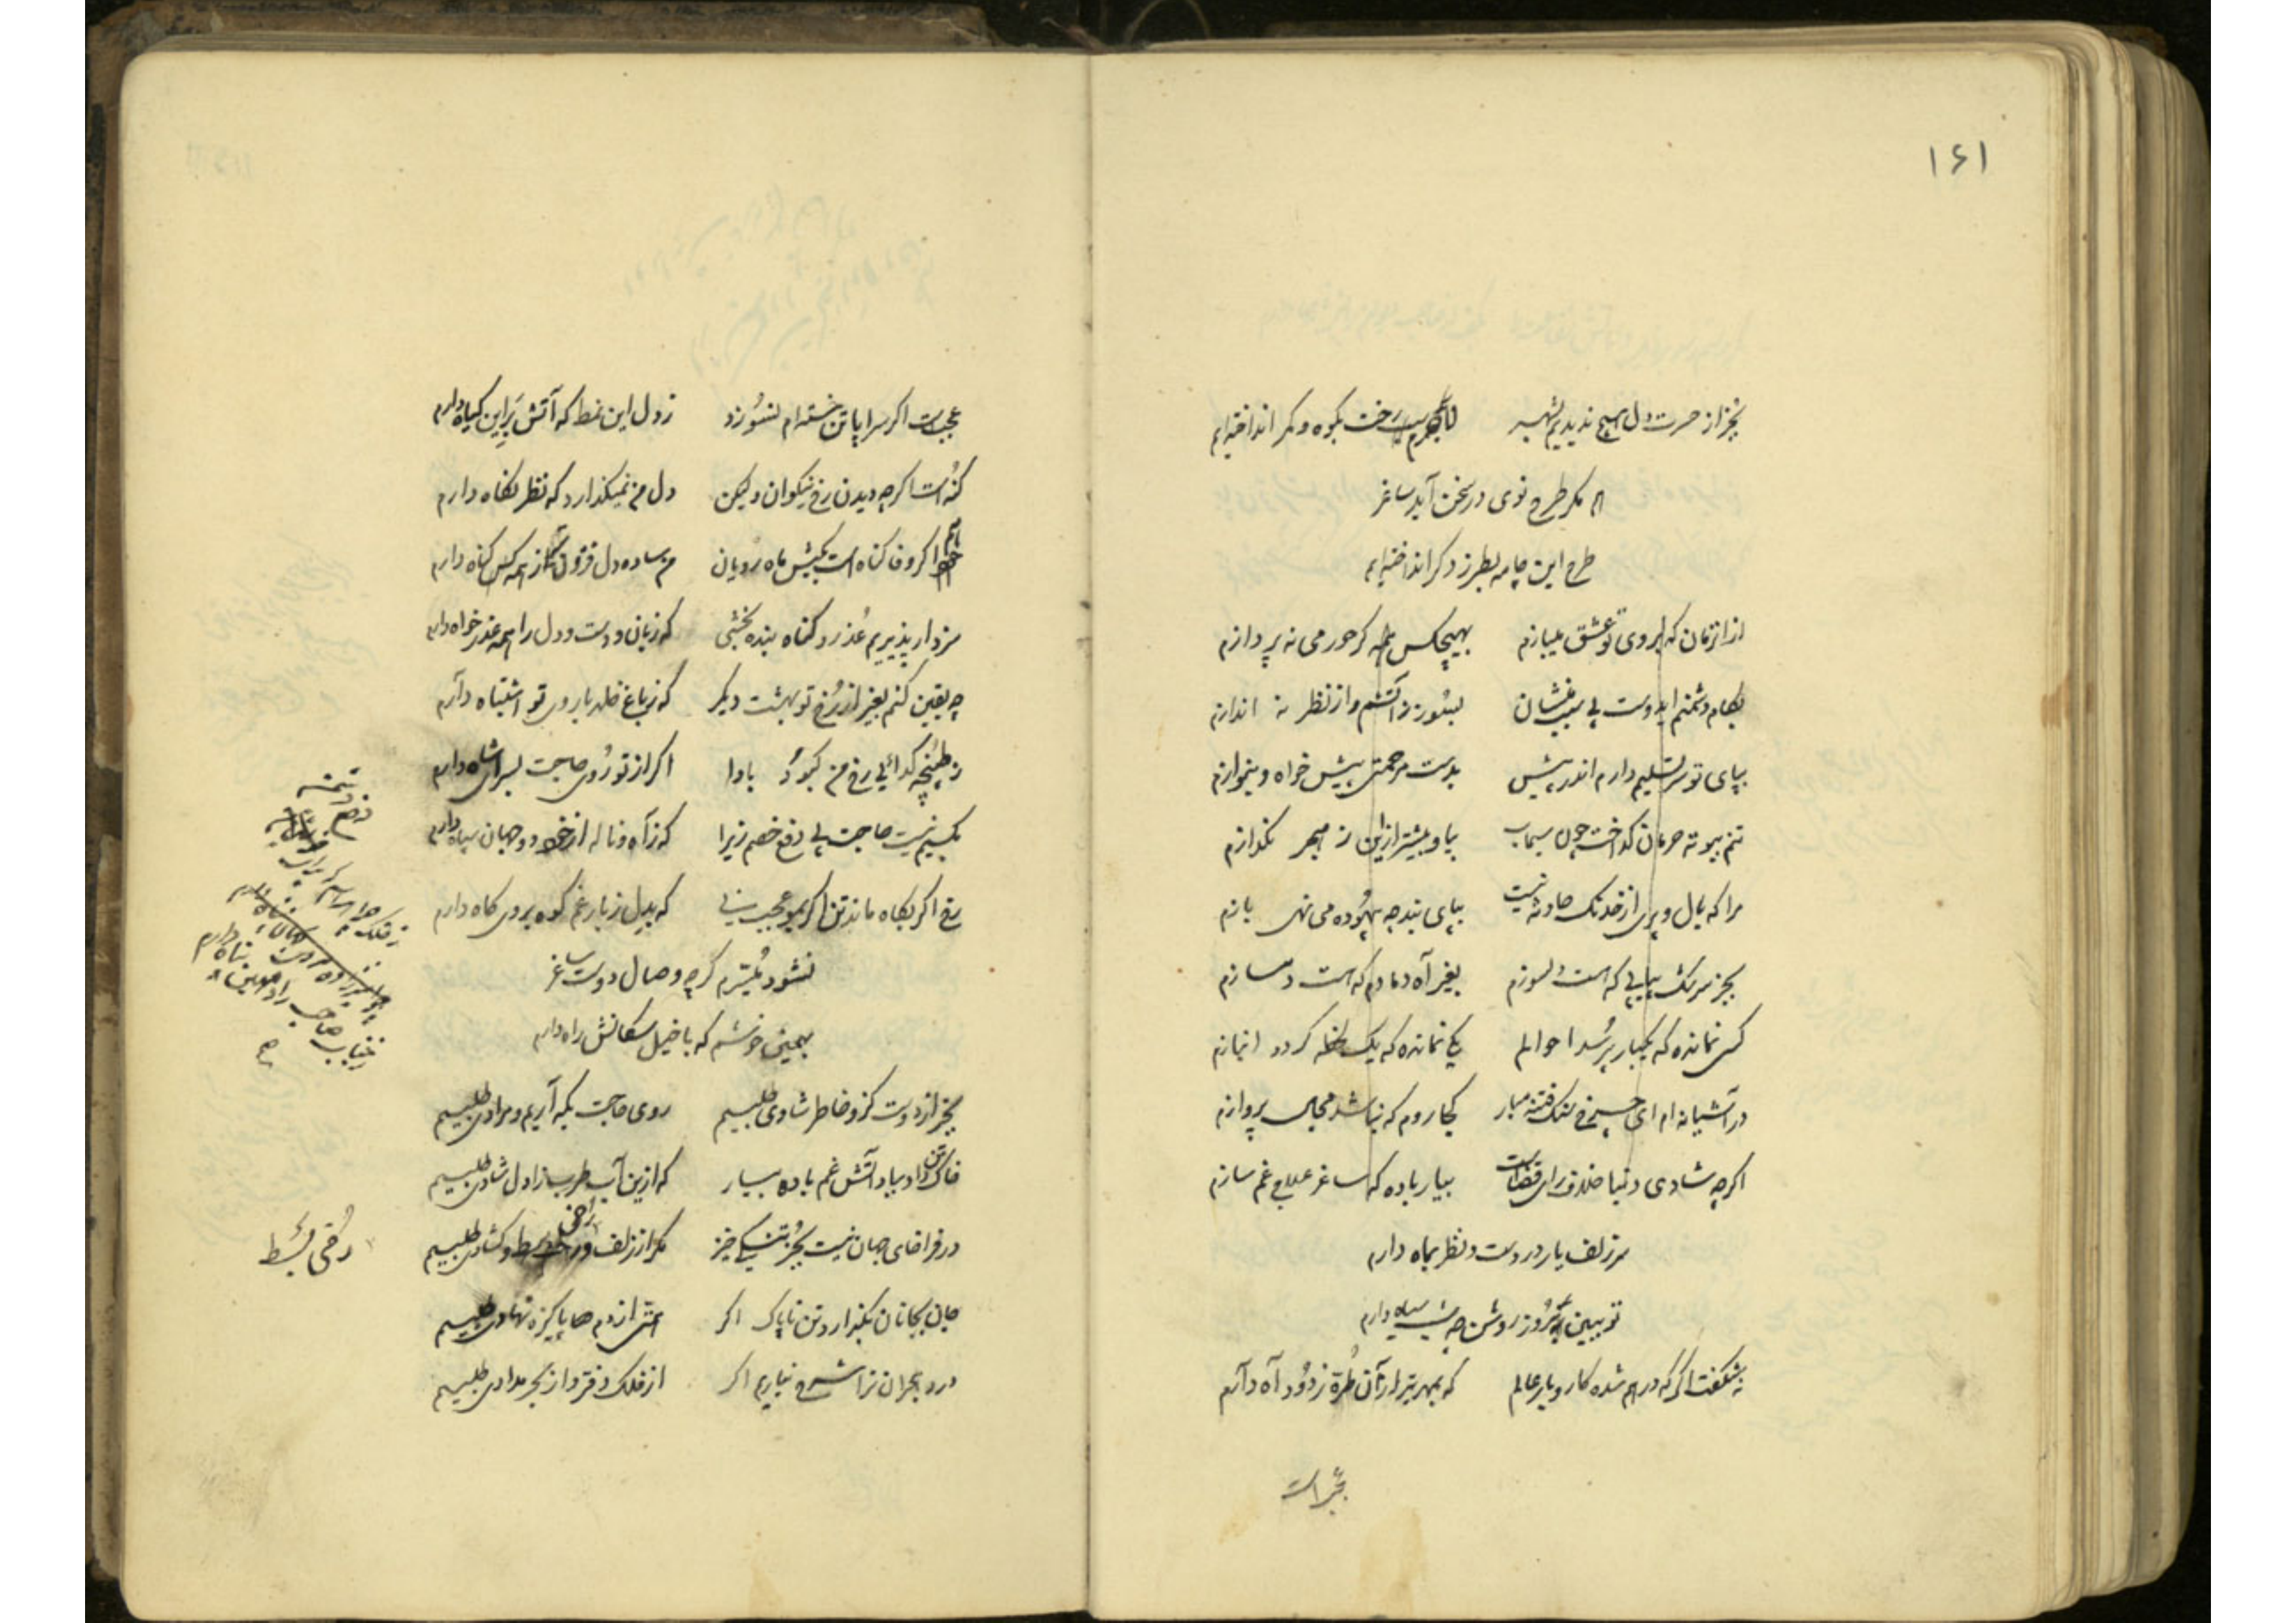 ۱۶۱
بجز از حسرت دل هیچ ندیدیم بشهر
رخت بکوه و کمر انداخته‌ایم
مکر طرح نوی در سخن آید ساغر
طرح این جامه بطرز دکر انداخته‌ایم
از انزمان که بابروی تو عشق میبازم
بهیچکس همه کر حور می نه پردازم
بکام دشمنم ایدوست بی سبب منشان
بسوز زاتشم و از نظر نه اندازم
بپای تو سر تسلیم دارم اندر پیش
بدست مرحمتی بیش خواه و بنوازم
تنم ببوته حرمان کداخت چون سیماب
بیا و بیشتر ازین ز مهر بکدازم
مرا که بال و پری از خدنک حادثه نیست
بپای بند چه بیهوده می نهی بازم
بجز سرشک پیاپی که هست دلسوزم
بغیر آه دمادم که هست دمسازم
کسی نمانده که یکبار پرسد احوالم
یکی نمانده که یک لحظه کردد انبازم
در آشیانه ام ای چرخ سنک فتنه مبار
کجا روم که نباشد مجال پروازم
اکرچه شادی دنیا خلاف رای قضاست
بیار باده که ساغر علاج غم سازم
سر زلف یار در دست و نظر بماه دارم
تو ببین که روز روشن چه شب سیاه دارم
نه شکفت اکر که درهم شده کار و بار عالم
که بهر تار آن طره ز دود آه دارم
عجبست
عجبست اکر سراپا تن خسته ام نسوزد
ز دل این نمط که آتش بر این کیاه دارم
کنه است اکرچه دیدن رخ نیکوان ولیکن
دل من نمیکذارد که نظر نکاه دارم
اکر وفا کناه است بکیش ماه رویان
من ساده دل فزون تر ز همه کس کناه دارم
سزد ار پذیریم عذر و کناه بنده بخشی
که زبان و دست و دل را همه عذر خواه دارم
چه یقین کنم بغیر از رخ تو بهشت دیکر
که ز باغ خلد با روی تو اشتباه دارم
ز طپنچه کدائی رخ من کبود بادا
اکر از تو روی حاجت بسرای شاه دارم
بکسیم نیست حاجت پی دفع خصم زیرا
که ز آه و ناله از خود دو جهان سپاه دارم
رخ اکر بکاه ماند تن اکر بمو عجب نی
که بدل ز بار غم کوه بروی کاه دارم
نشود میسرم کرچه وصال دوست ساغر
بهمین خوشم که با خیل سکانش راه دارم
بجز از دوست کزو خاطر شادی طلبیم
روی حاجت بکه آریم و مرادی طلبیم
خاک تن داد بباد آتش غم باده بیار
که ازین آب طرب ساز دل شادی طلبیم
در فراخای جهان نیست بجز تنکی خیز
مکر از زلف و رخش بسط و کشادی طلبیم
جان بجانان نکذارد تن ناپاک اکر
همتی از دم هر پاکیزه نهادی طلبیم
درد هجران ترا شرح نیاریم اکر
از فلک دفتر و از بحر مدادی طلبیم